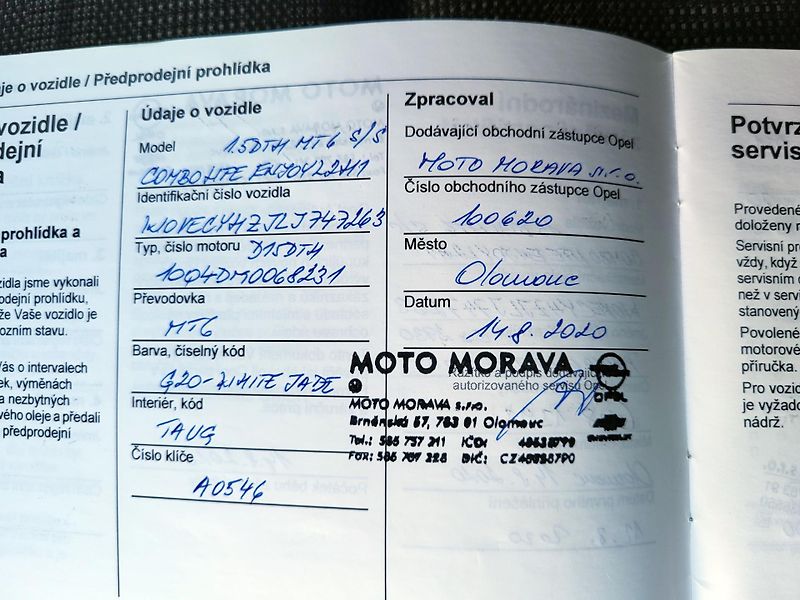 je o vozidle / Předprodejní prohlídka
vozidle /
dejní
a
prohlídka a
a
zidla jsme vykonali
dejní prohlídku,
že Vaše vozidlo je
vozním stavu.
Vás o intervalech
ek, výměnách
a nezbytných
vého oleje a předali
předprodejní
Údaje o vozidle
Model 1.5DTH MT6 S/S
COMBO LIFE ENJOY L2H1
Identifikační číslo vozidla
Typ, číslo motoru D15DTH
10Q4DM0068231
Převodovka
MT6
Barva, číselný kód
G20-WHITE JADE
Interiér, kód
TAUG
Číslo klíče
A0546
Zpracoval
Dodávající obchodní zástupce Opel
MOTO MORAVA s.r.o.
Číslo obchodního zástupce Opel
100620
Město
Olomouc
Datum
14.8.2020
MOTO MORAVA
Razítko a podpis dodávajícího
autorizovaného servisu Opel
OPEL
MOTO MORAVA s.r.o.
Brněnská 57, 783 01 Olomouc
CHEVROLET
Tel.: 585 757 211 IČO:
Fax: 585 757 228 DIČ:
Potvrz
servis
Provedené
doloženy r
Servisní pr
vždy, když
servisním d
než v servi
stanovený
Povolené
motorové
příručka.
Pro vozid
je vyžado
nádrž.